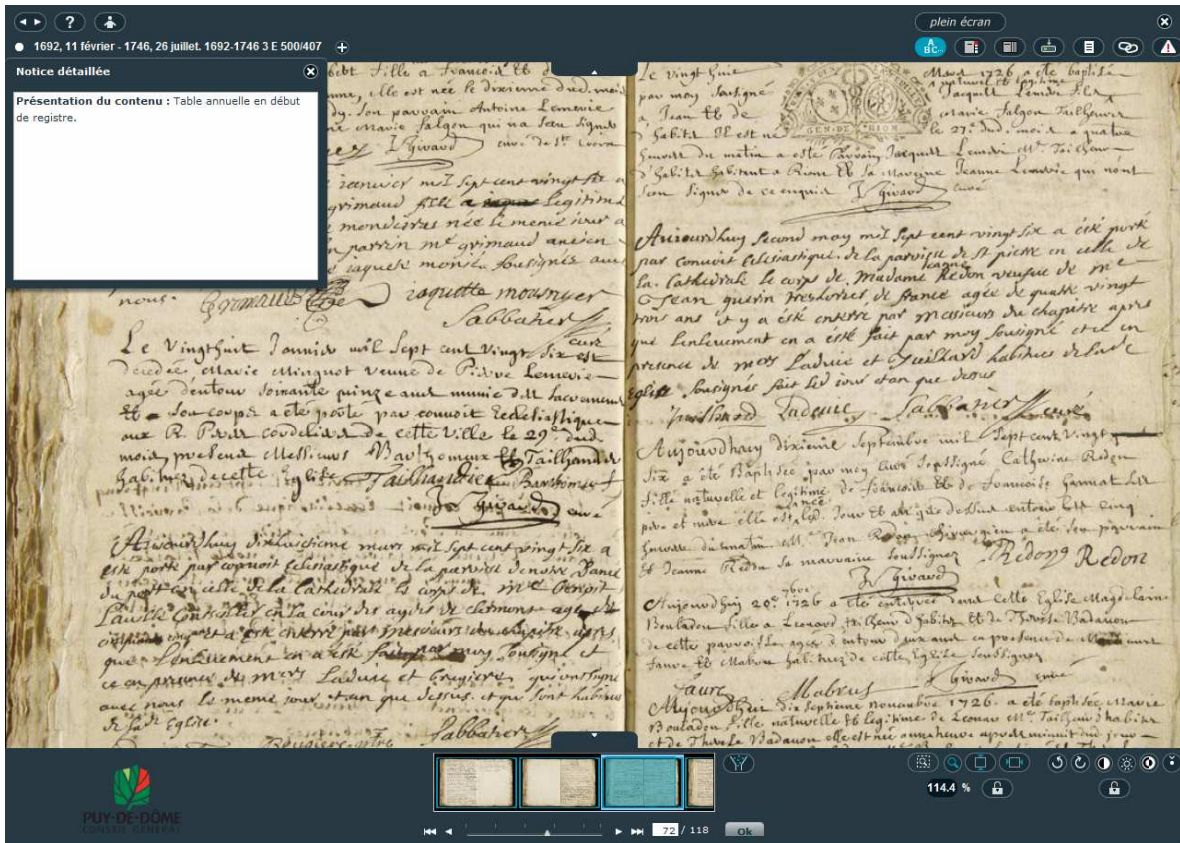 plein écran
1692, 11 février - 1746, 26 juillet. 1692-1746 3 E 500/407
A
BC...
Notice détaillée
Présentation du contenu : Table annuelle en début
de registre.
fille a francois Et
elle est née le dixieme dud. mois
son parvain Antoine Lemerie
marie falgon qui na sceu signer
Girard curé de
janvier mil sept cent vingt six a
grimaud fille legitime
née le meme iour a
parrin me grimaud ancien
iaquete sousignée avec
nous.
Grimaud iaquette mounyer
Sabbatier curé
Le Vingthuit Janvier mil Sept cent Vingt Six est
decedee Marie Minguot veuve de Pierre Lemerie
agée dentour soixante quinze ans munie des sacremens
Et Son corps a été porté par convoit Ecclesiastique
aux R. Peres cordeliers de cette Ville le 29e dud
mois presens Messieurs Barthomeux Et Tailhandier
habitués de cette Eglise Tailhandier Barthomeuf
Girard curé
Aujourdhuy dixhuitieme mars mil sept cent vingt-six a
esté porté par convoit eclesiastique de la paroise de notre Dame
du port en celle de la Cathedrale le corps de me benoit
Conseiller en la cour des aydes de clermont agé de
a esté enterré par messieurs du chapitre apres
que l'enlevement en a esté fait par moy sousigné et
ce en presence de mers Ladevie et brugiere qui ont signé
avec nous le meme iour et an que dessus. et qui sont habitues
de lad. Eglise.
Sabbatier
Le vingt huit Mars 1726 a été baptisé
par moy sousigné naturel et legitime
a Jean Et de Marie falgon Tailheur
d'habits Il est né le 27e dud. mois a quatre
GEN. DE RION
heures du matin a esté parrain Jacques Lemerie Me Tailheur
d'habits habitant a Riom Et sa marenne Jeanne Lemerie qui n'ont
sceu signer de ce enquis Girard curé
Aujourdhuy second may mil sept cent vingt six a esté porté
par convoit eclesiastique de la paroisse de st pierre en celle de
la Cathedrale le corps de Madame jeanne Redon veufue de me
Jean guerin tresborier de france agée de quatre vingt
trois ans et y a esté enterré par messieurs du chapitre apres
que l'enlevement en a esté fait par moy sousigné et ce en
presence de mers Ladevie et Juilhard habitues de lad.
Eglise sousignés fait led iour et an que dessus
Juilhard Ladevie Sabbatier curé
Aujourdhuy dixieme septembre mil Sept cent Vingt
six a été Baptisée par moy curé soussigné Catherine Redon
fille naturelle et legitime de francois Et de francoise
pere et mere elle est née led. Jour Et an que dessus entour les cinq
heures du matin Me Jean Redon Chirurgien a été son parrain
Et Jeanne Redon sa marraine soussignez Redon Redon
Girard
Aujourdhuy 20e 7bre 1726 a été enterrée dans cette Eglise Magdelaine
Bouladon fille a Leonard tailheur d'habits Et de Therese Badanon
de cette parroisse agée d'entour deux ans en presence de Messieurs
faure Et Mabrus habitués de cette Eglise Soussignez
faure Mabrus Girard curé
Aujourdhuy dix septieme novembre 1726. a été baptisée Marie
Bouladon fille naturelle Et legitime de Leonard Me Tailheur d'habits
et de Therese Badanon elle est née une heure apres minuit dud jour
PUY-DE-DÔME
CONSEIL GENERAL
114.4 %
72 / 118
Ok